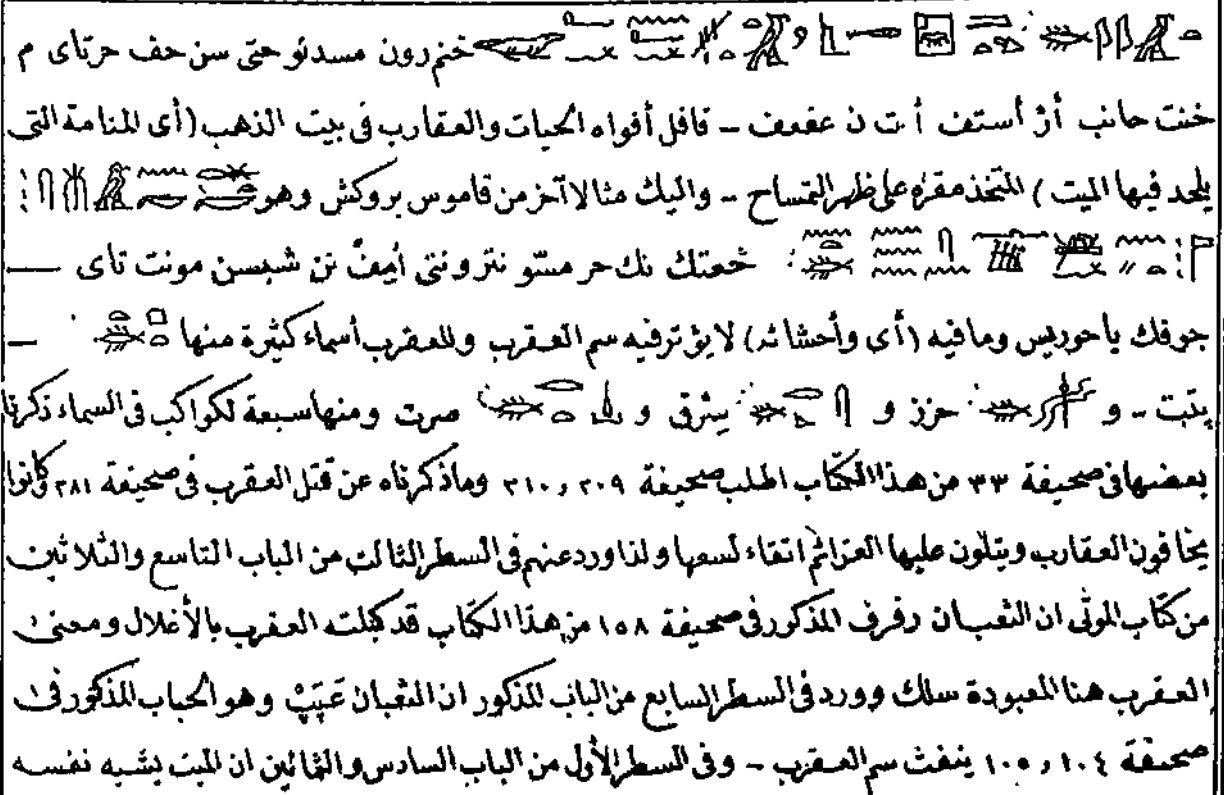 خنم رون مسدئو حتى سن حف حرتاى م
خنت حانب أژ أستف أ ت ن عفعف – قافل أفواه الحيات والعقارب فى بيت الذهب (أى المنامة التى
يلحد فيها الميت) المتخذ مقره على ظهر التمساح – واليك مثالا آخر من قاموس بروكش وهو
خعتك نك حر مستو نترو نتى أمِف نن شبسن مونت تاى —
جوفك ياحوريس ومافيه (أى وأحشائه) لايؤثر فيه سم العقرب وللعقرب أسماء كثيرة منها —
پتبت – و حزز و سرق و صرت ومنها سبعة لكواكب فى السماء ذكرنا
بعضها فى صحيفة ٣٣ من هذا الكتاب اطلب صحيفة ٢٠٩ و ٣١٠ وماذكرناه عن قتل العقرب فى صحيفة ٢٨١ وكانوا
يخافون العقارب ويتلون عليها العزائم اتقاء لسعها ولذا ورد عنهم فى السطر الثالث من الباب التاسع والثلاثين
من كتاب الموتى ان الثعبان رفرف المذكور فى صحيفة ١٥٨ من هذا الكتاب قد كبلته العقرب بالأغلال ومعنى
العقرب هنا المعبودة سلك وورد فى السطر السابع من الباب المذكور ان الثعبان عَبَبْ وهو الحباب المذكور فى
صحيفة ١٠٤ و ١٠٥ ينفث سم العقرب – وفى السطر الأول من الباب السادس والثمانين ان الميت يشبه نفسه